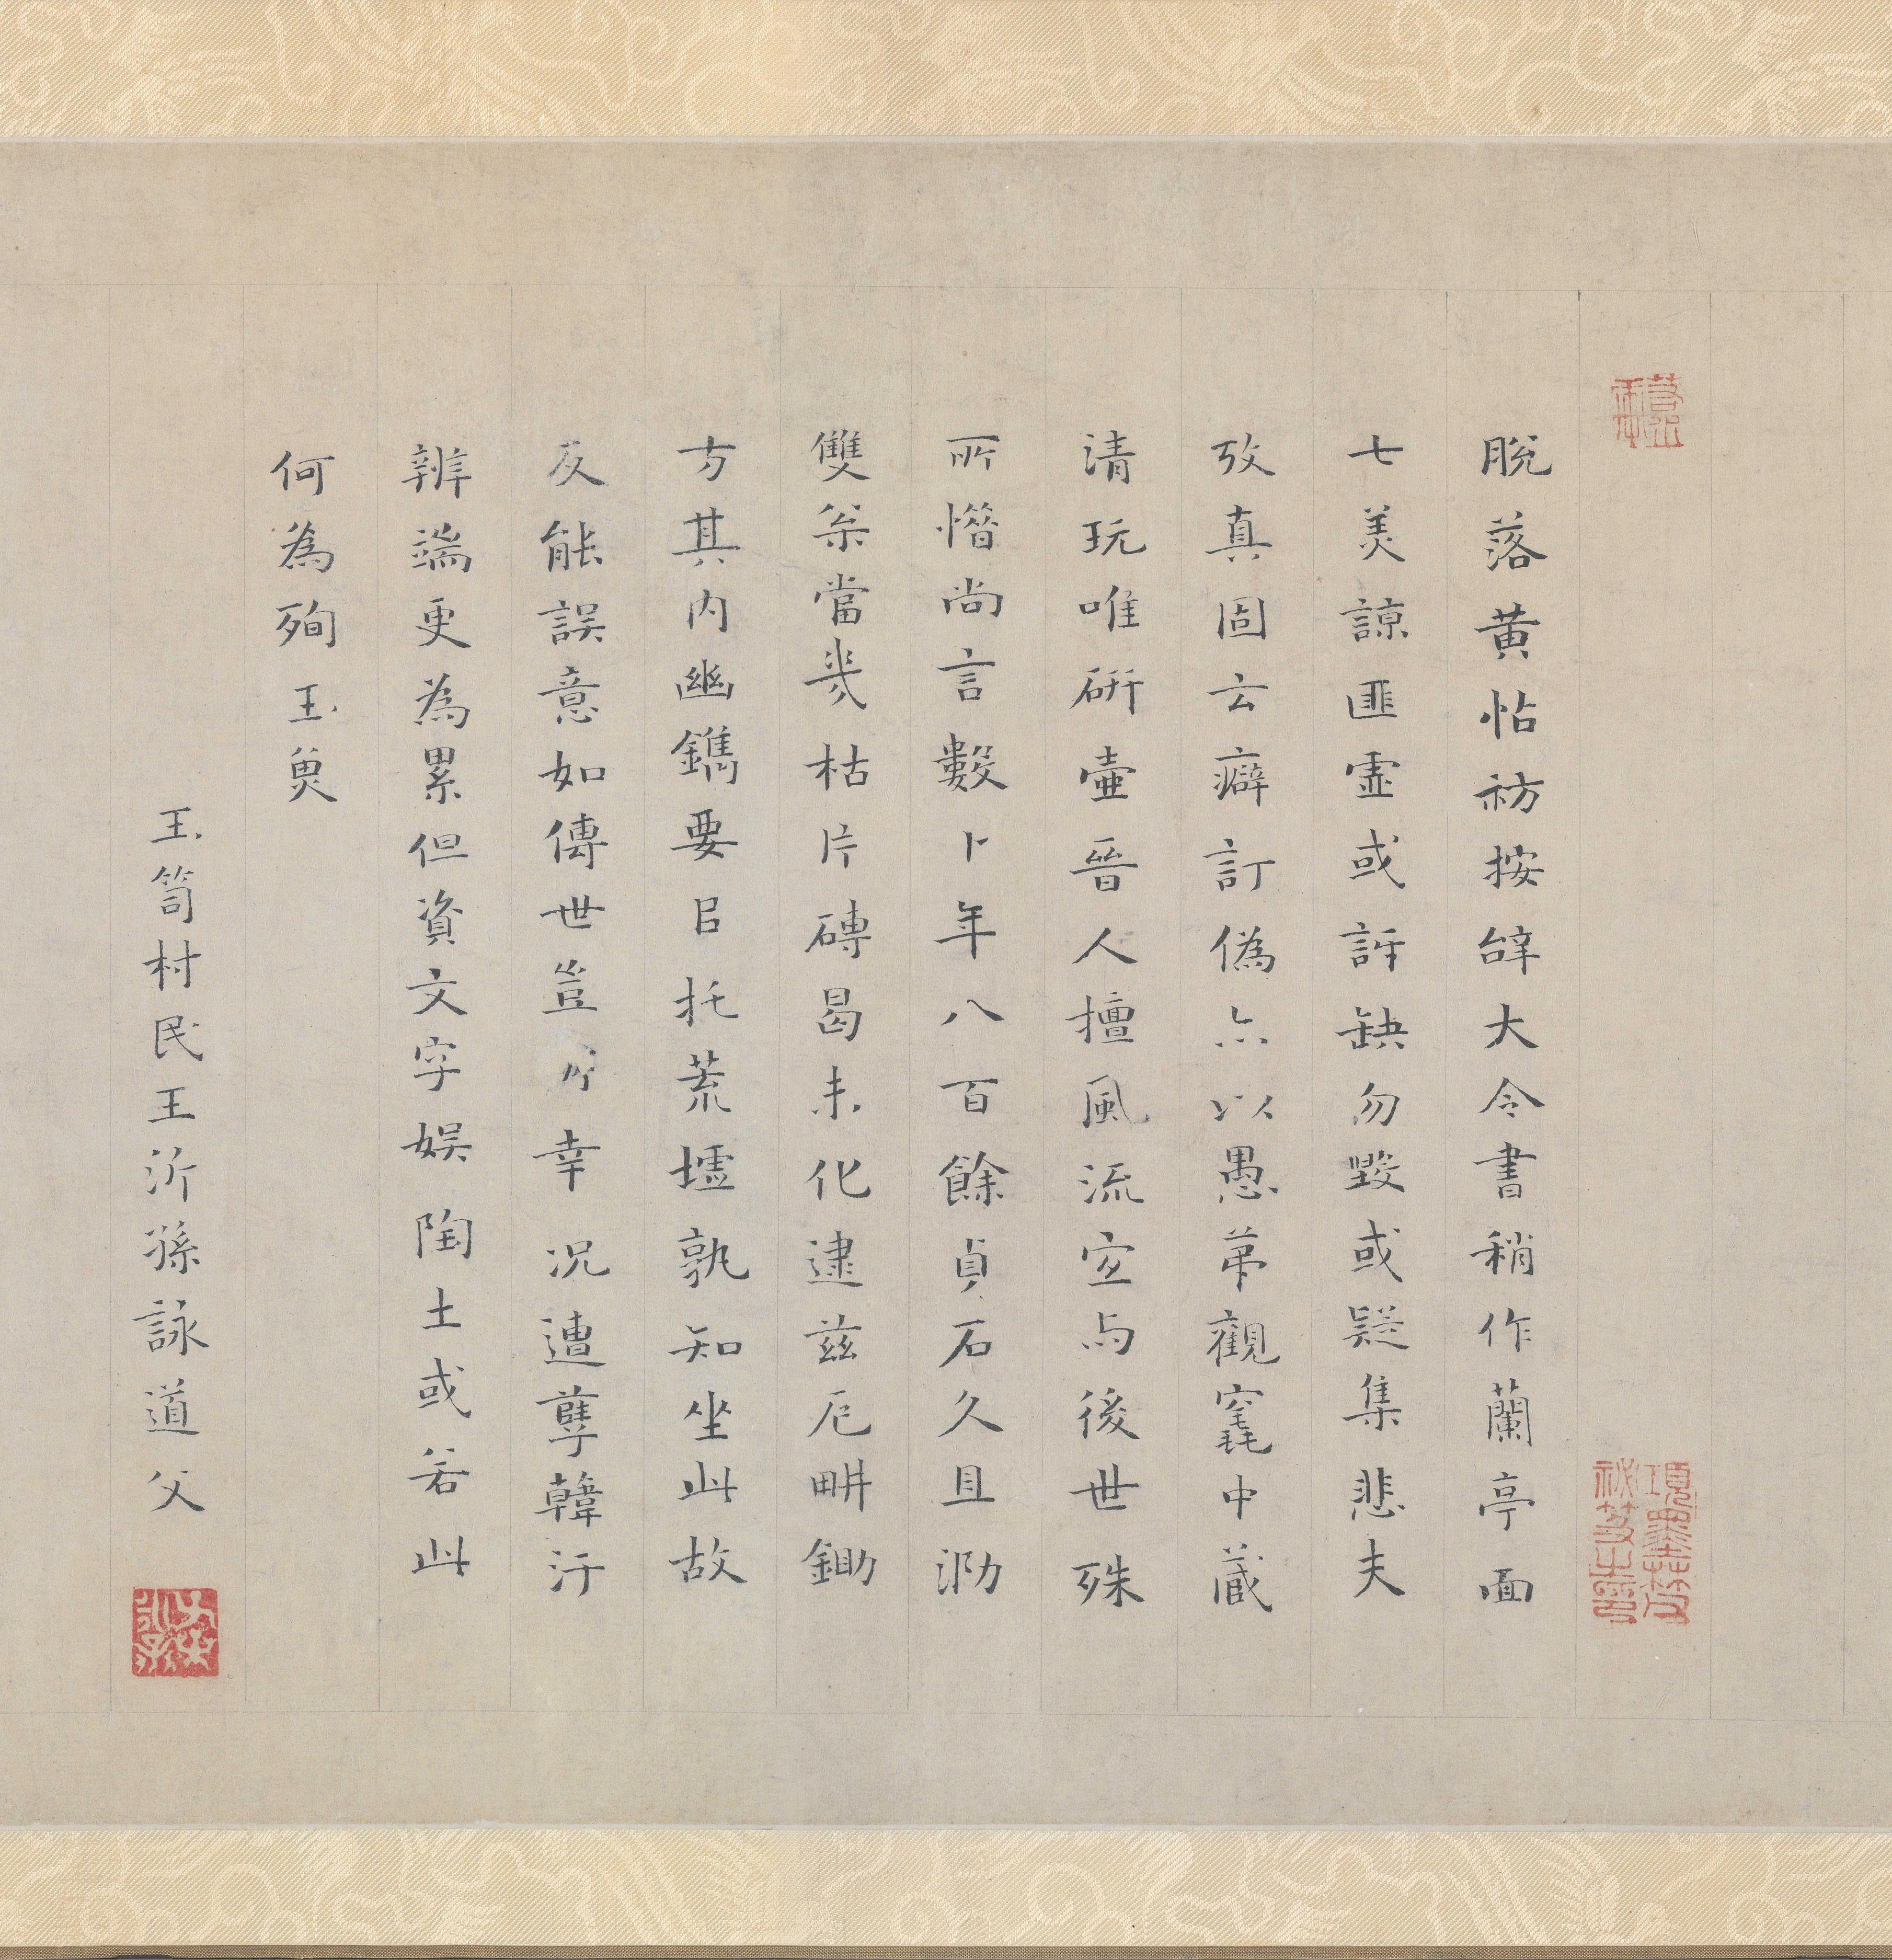 脫落黃帖祊按辝大令書稍作蘭亭面
七美諒匪虛或訝缺勿毀或疑集悲夫
攷真固云癖訂偽亦以愚苐觀窀中蔵
清玩唯硏壷晉人擅風流宜与後世殊
所憯尚言數卜年八百餘貞石久且泐
雙㭒當㡬枯片磚曷未化逮茲厄畊鋤
方其內幽鐫要㠯托荒墟孰知坐此故
反能誤意如傳世豈所幸況遭孽韓汙
辨端更為累但資文字娱陶土或若此
何為殉玉臾
玉笥村民王沂孫詠道父
項墨林父祕笈之印